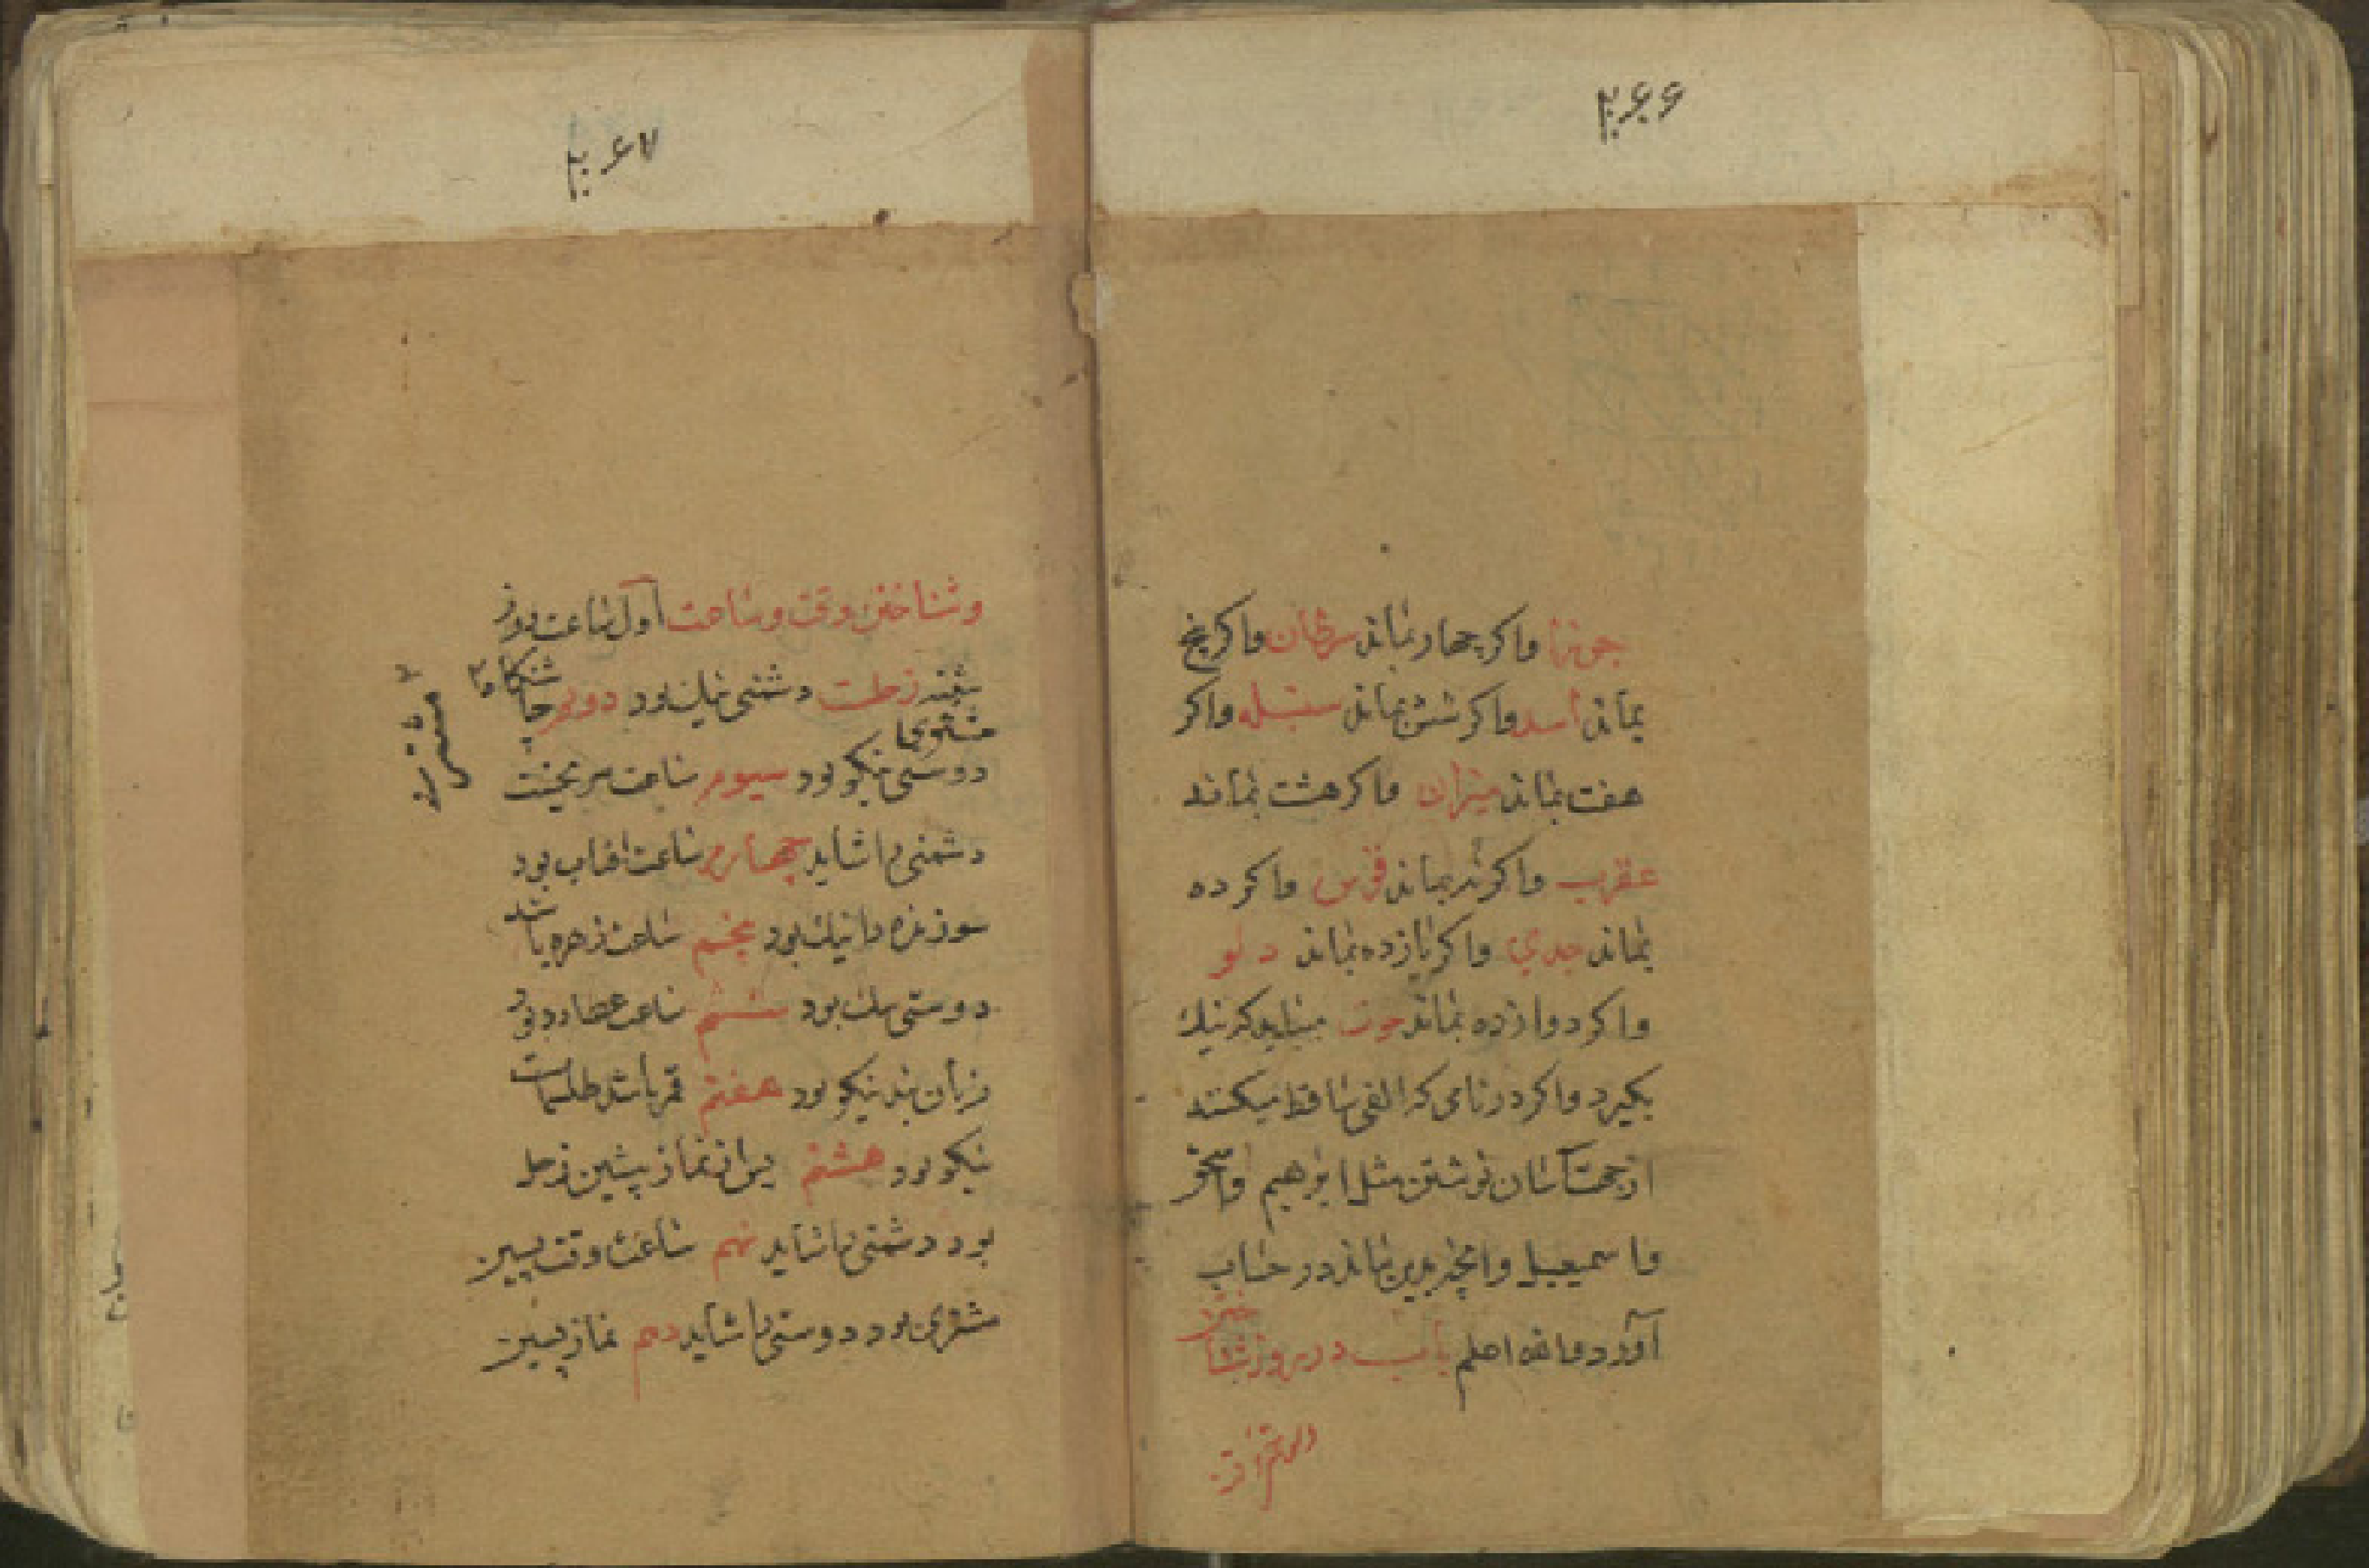 ۲۶۶
جوزا واکر چهار نماند سرطان واکر پنج
بماند اسد واکر شش بماند سنبله واکر
هفت بماند میزان واکر هشت بماند
عقرب واکر نه بماند قوس واکر ده
بماند جدي واکر یازده بماند دلو
واکر دوازده بماند حوت میباید که نیک
بکیرد واکر در نامی که الفی ساقط میکنند
از جهت آسان نوشتن مثل ابرهیم واسحق
واسمعیل وانچه بدین ماند در حساب
آورد والله اعلم باب در روز شنا
ختن
۲۶۷
وشناختن وقت وساعت اول ساعت روز
شنبه زحلست دشمنی نیک بود دویم
مشتری
دوستی نیکو بود سیوم ساعت مریخست
دشمنی را شاید چهارم ساعت افتاب بود
بود پنجم ساعت زهره باشد
دوستی نیک بود ششم ساعت عطارد بود
زبان بند نیکو بود هفتم قمر باشد طلسمات
نیکو بود هشتم پس از نماز پیشین زحل
بود دشمنی را شاید نهم ساعت وقت پسین
مشتری بود دوستی را شاید دهم نماز پسین